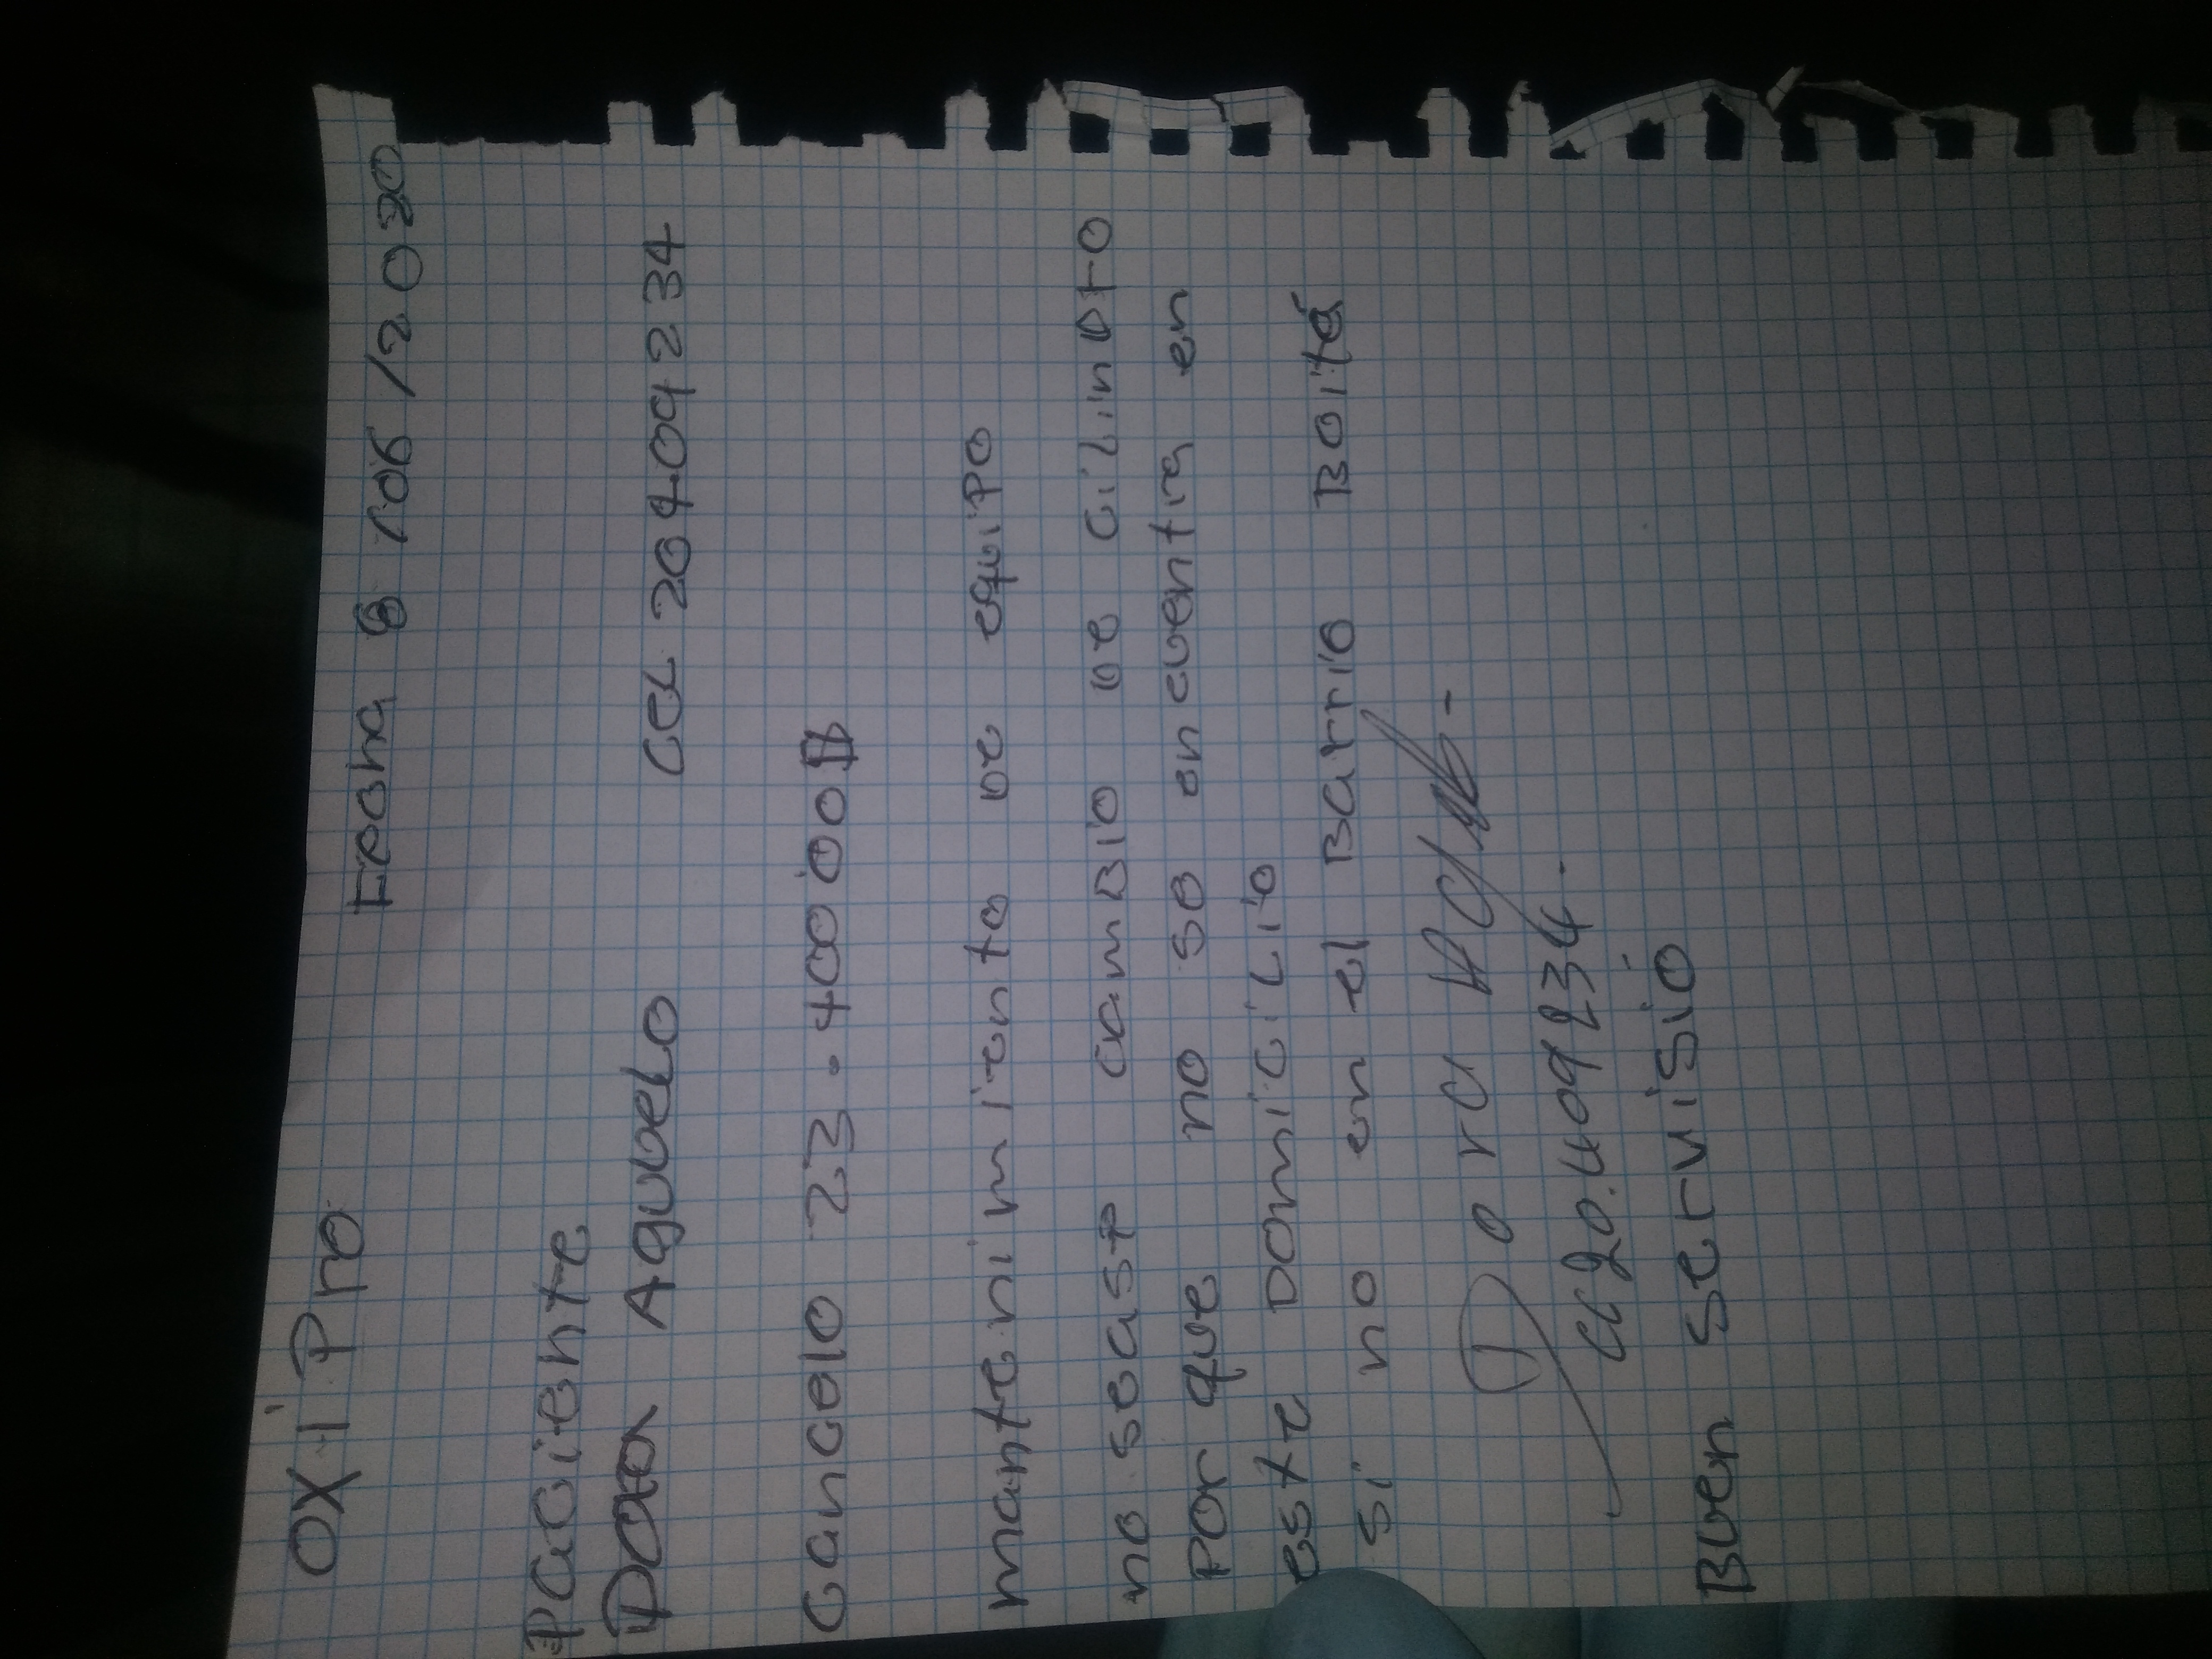 OXi Pro Fecha 8 / 06 / 2020
Paciente
Dora Agudelo Cel 20409234
Cancelo 23.400'00$
mantenimiento de equipo
no sease cambio de cilindro
Por que no se encuentra en
este Domicilio
si no en el Barrio Boitá
Dora
cc 20.409234.
Buen servisio